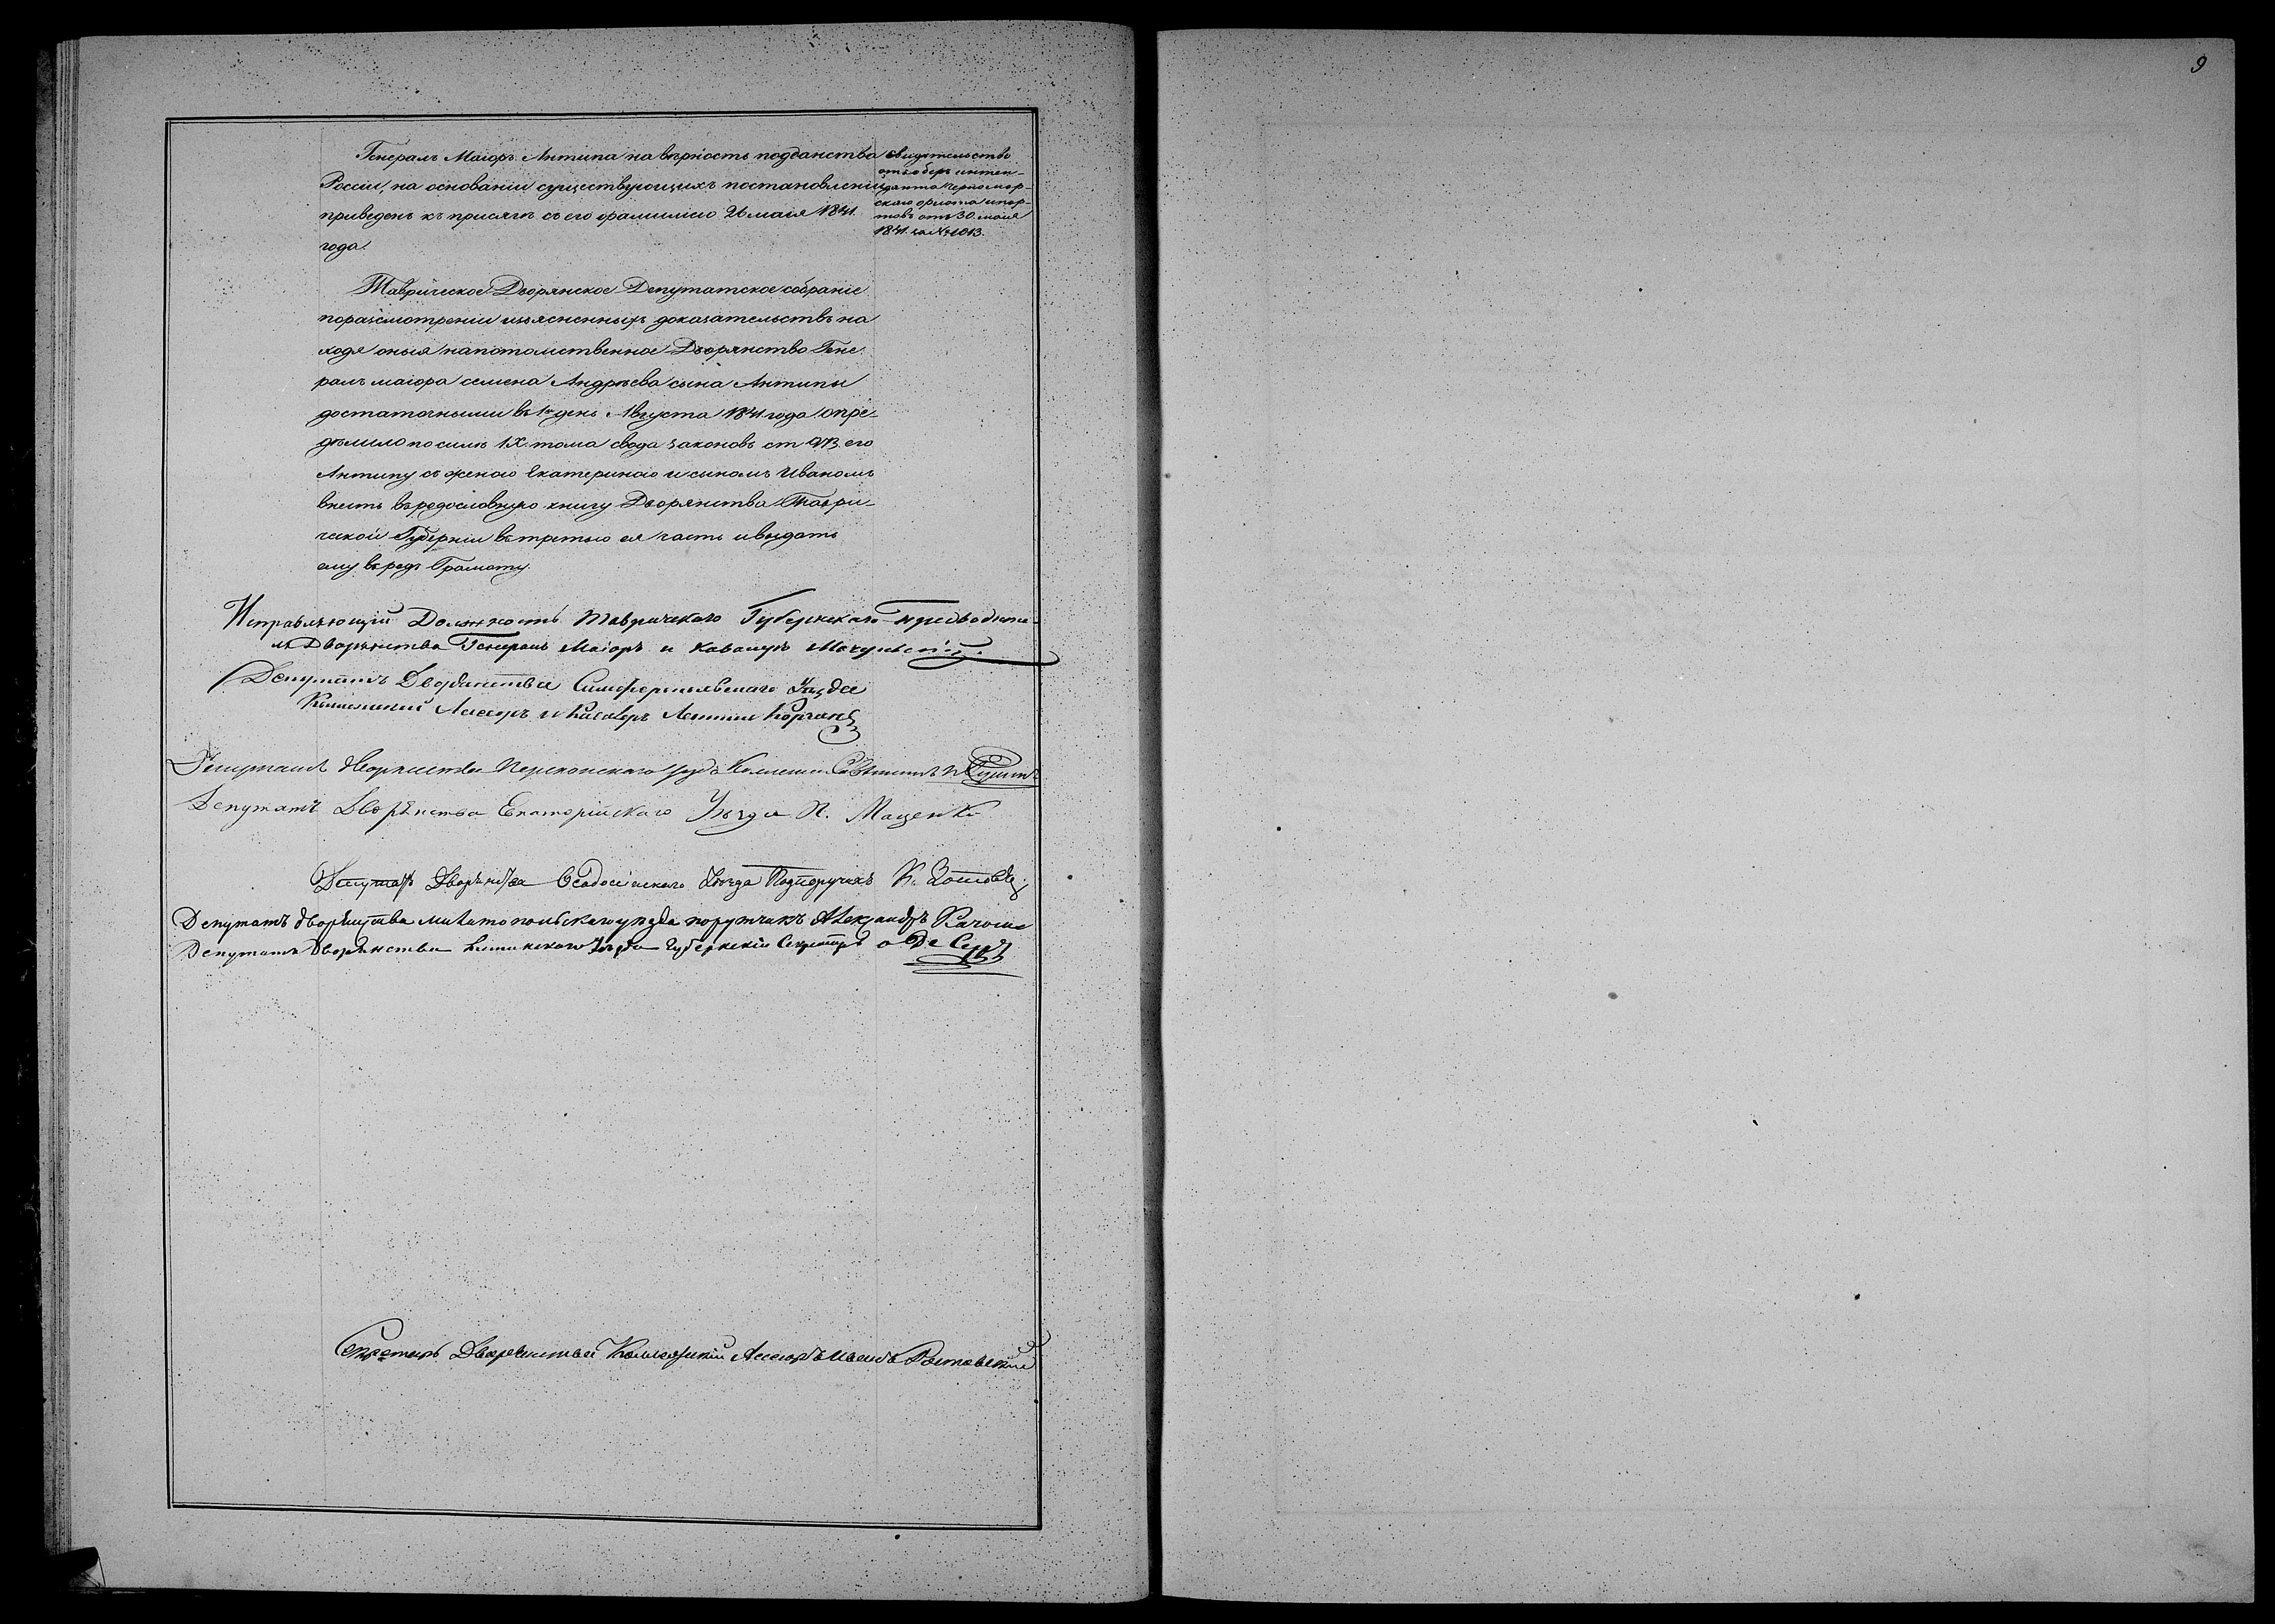 9
Генералъ Маіоръ Антипа на вѣрность подданства
Россіи, на основаніи существующихъ постановленій
приведенъ къ присягѣ съ его фамиліею 26 маія 1841.
года.
свидѣтельство
отъ оберъ интен-
данта Черномор-
скаго флота и пор-
товъ отъ 30. маія
1841. за № 1013.
Таврическое Дворянское Депутатское собраніе
по разсмотреніи изъясненныхъ доказательствъ на
ходя оныя на потомственное Дворянство Гене
ралъ маіора семена Андрѣева сына Антипы
достаточными въ 1й день Августа 1841 года опре-
дѣлило по силѣ IX. тома свода законовъ ст 973 его
Антипу съ женою Екатериною и сыномъ Иваномъ
внесть въ родословную книгу Дворянства Таври-
ческой Губерніи въ третью ея часть и выдать
ему въ родъ Грамоту.
Исправляющій Должность Таврическаго Губернскаго предводите-
ля Дворянства Генералъ Маіоръ и Кавалеръ
Депутатъ Дворянства Симферопольскаго Уѣзда
Коллежскій Асесоръ и Кавалеръ
Депутатъ дворянства Перекопскаго уезда
Депутатъ Дворянства Евпаторійскаго Уѣзда П. Маценко
Депутатъ Дворянства Ѳеодосійскаго Уѣзда Подпоручикъ К.
Депутатъ дворянства мелитопольскаго уезда поручикъ Александръ
Депутатъ Дворянства Ялтинскаго Уѣзда Губернскій Секретарь
Секретарь Дворянства Коллежскій Асесоръ Иванъ